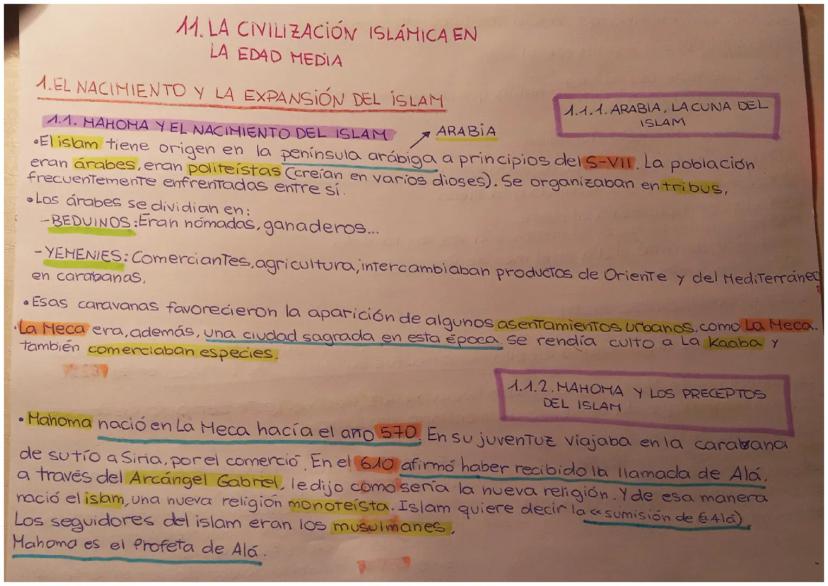 11. LA CIVILIZACIÓN ISLÁMICA EN
LA EDAD MEDIA
1. EL NACIMIENTO Y LA EXPANSIÓN DEL ISLAM
1.1.1. ARABIA, LA CUNA DEL
ISLAM
1.1. MAHOMA Y EL NACIMIENTO DEL ISLAM
ARABIA
•El islam tiene origen en la península arábiga a principios del S-VII. La población
eran árabes, eran politeístas (creían en varios dioses). Se organizaban en tribus,
frecuentemente enfrentadas entre sí.
•Los árabes se dividian en:
-BEDUINOS: Eran nómadas, ganaderos...
-YEMENIES: Comerciantes, agricultura, intercambiaban productos de Oriente y del Mediterráneo
en carabanas.
•Esas caravanas favorecieron la aparición de algunos asentamientos urbanos, como La Meca.
•La Meca era, además, una ciudad sagrada en esta época. Se rendía culto a La Kaaba y
también comerciaban especies.
1.1.2. MAHOMA Y LOS PRECEPTOS
DEL ISLAM
•Mahoma nació en La Meca hacía el año 570. En su juventuz viajaba en la carabana
de su tío a Siria, por el comercio. En el 610 afirmó haber recibido la llamada de Alá,
a través del Arcángel Gabriel, le dijo como sería la nueva religión. Y de esa manera
nació el islam, una nueva religión monoteísta. Islam quiere decir la «sumisión de Alá»
Los seguidores del islam eran los musulmanes.
Mahoma es el Profeta de Alá.